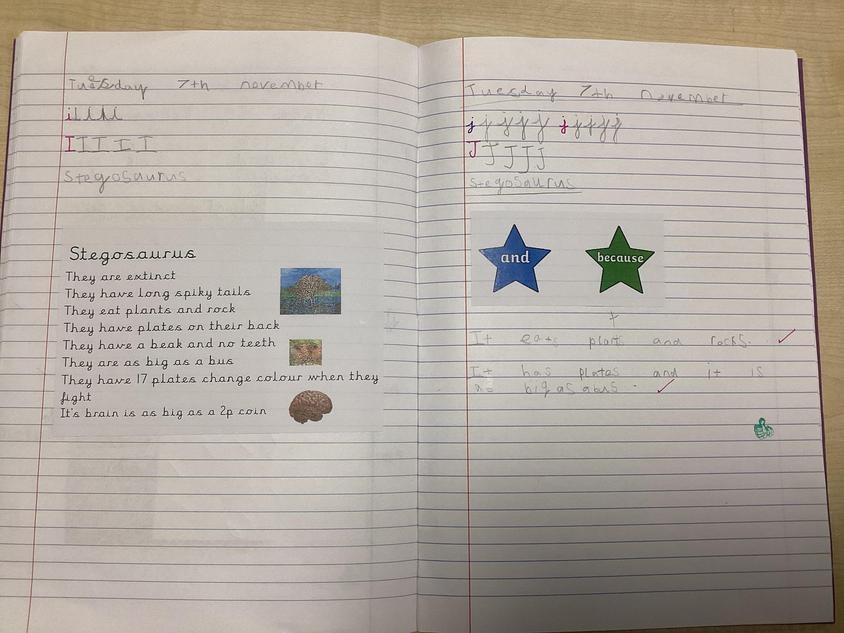 Tuesday 7th november
i i i i i
I I I I I
Stegosaurus
Stegosaurus
They are extinct
They have long spiky tails
They eat plants and rock
They have plates on their back
They have a beak and no teeth
They are as big as a bus
They have 17 plates change colour when they
fight
It's brain is as big as a 2p coin
Tuesday 7th november
j j j j j j j j j j
J J J J J
Stegosaurus
and because
It eats plants and rocks.
It has plates and it is
big as abus.